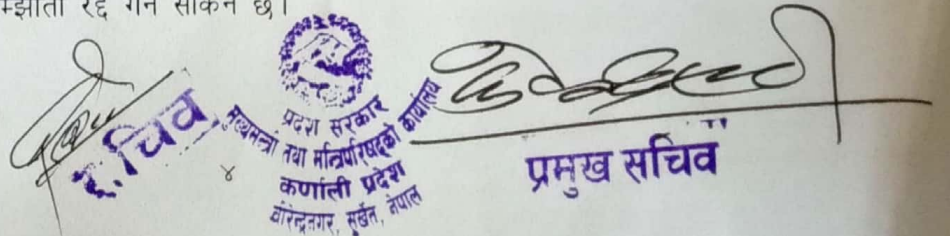 म्झौता रद्द गर्न सकिने छ।
सचिव
४
प्रदेश सरकार
मुख्यमन्त्री तथा मन्त्रिपरिषद्को कार्यालय
कर्णाली प्रदेश
वीरेन्द्रनगर, सुर्खेत, नेपाल
प्रमुख सचिव